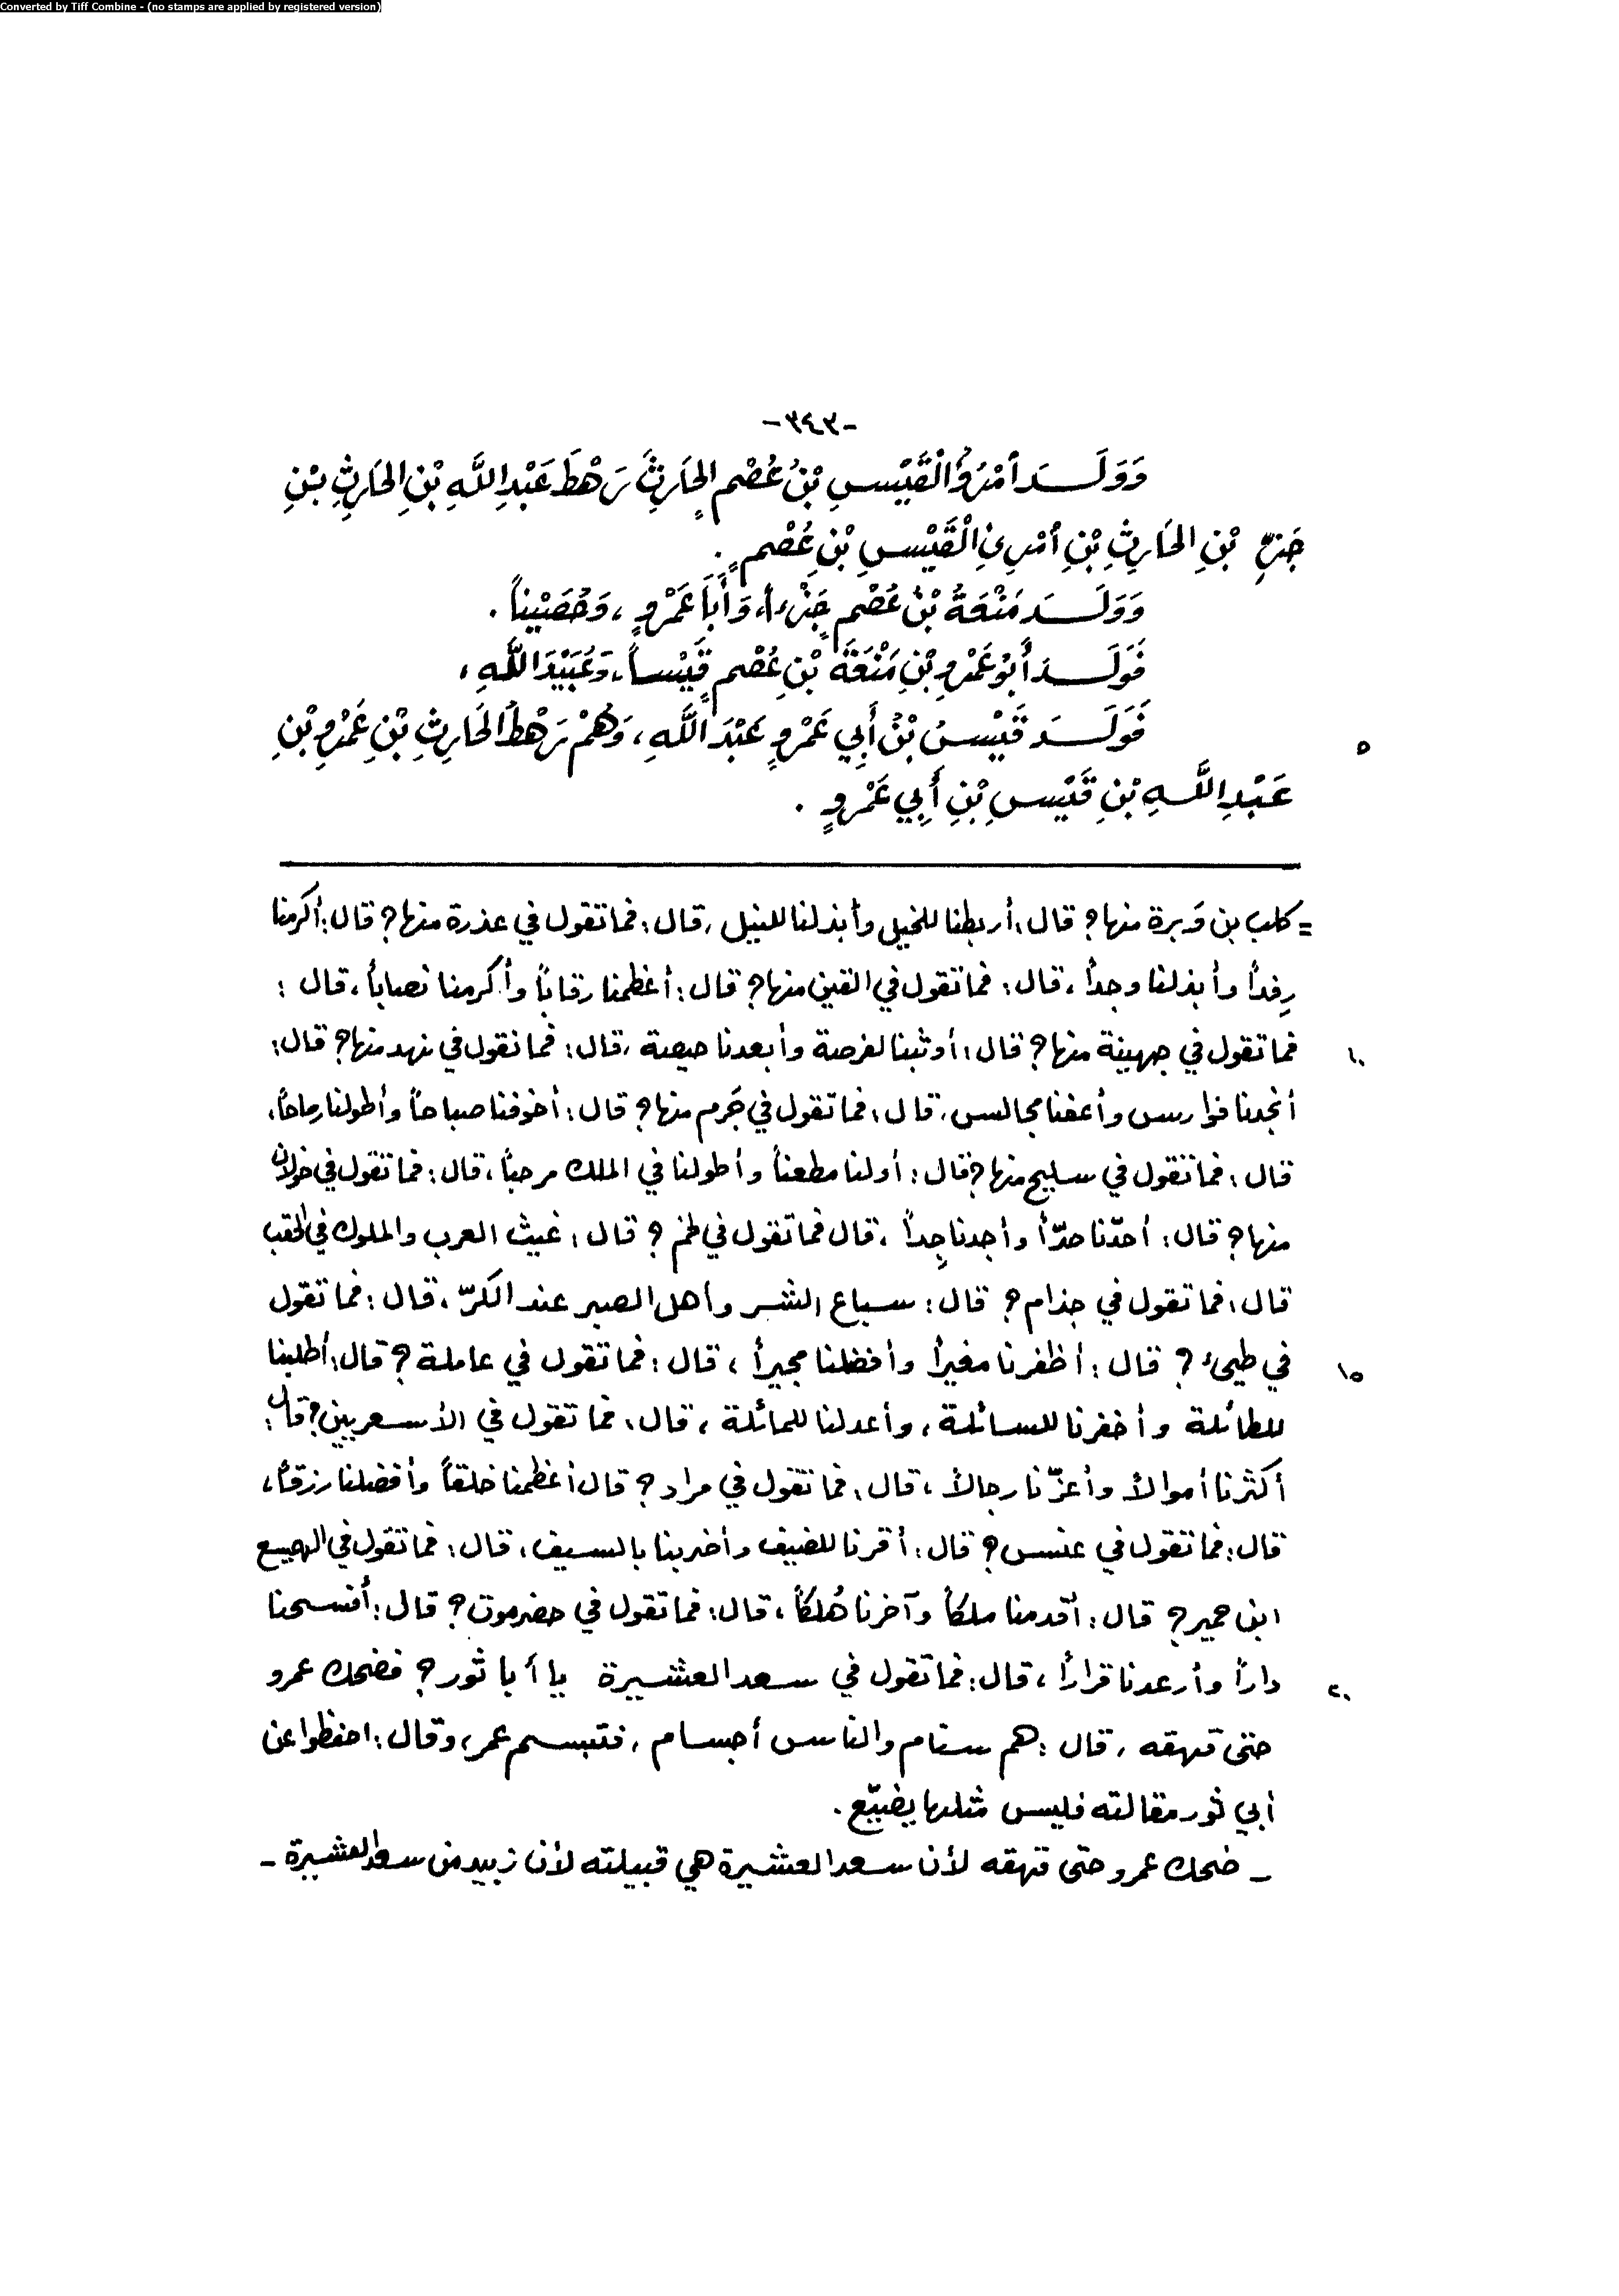 Converted by Tiff Combine - (no stamps are applied by registered version)
-٣٤٣-
وَوَلَــدَ أمْرُؤُ الْقَيْسِ بْنُ عُصْمٍ الحَارِثَ رَهْطَ عَبْدِ اللَّهِ بْنِ الحَارِثِ بْنِ
جَزْءِ بْنِ الحَارِثِ بْنِ أمْرِئِ الْقَيْسِ بْنِ عُصْمٍ .
وَوَلَــدَ مَنْعَةُ بْنُ عُصْمٍ جَزْءاً، وَأَبَا عَمْرٍو ، وَحُصَيْناً .
فَوَلَــدَ أَبُو عَمْرِو بْنِ مَنْعَةَ بْنِ عُصْمٍ قَيْساً، وَعُبَيْدَ اللَّهِ ،
فَوَلَــدَ قَيْسُ بْنُ أَبِي عَمْرٍو عَبْدَ اللَّهِ ، وَهُمْ رَهْطُ الحَارِثِ بْنِ عَمْرِو بْنِ
٥
عَبْدِ اللَّهِ بْنِ قَيْسِ بْنِ أَبِي عَمْرٍو .
= كلب بن وَبرة منها؟ قال: أربطنا للخيل وأبذلنا للنيل، قال: فما تقول في عذرة منها؟ قال: أكرمنا
رِفداً وأبذلنا وجداً، قال: فما تقول في القين منها؟ قال: أعظمنا رقاباً وأكرمنا نصاباً، قال :
فما تقول في جهينة منها؟ قال: أوثبنا لفرصة وأبعدنا حيصة، قال: فما نقول في نهد منها؟ قال:
١٠
أنجدنا فوارس وأعفنا مجالس، قال: فما تقول في جَرم منها؟ قال: أخوفنا صباحاً وأطولنا رماحاً،
قال: فما تقول في سليح منها؟ قال: أولنا مطعناً وأطولنا في الملك مرحباً، قال: فما تقول في خولان
منها؟ قال: أحدّنا حدّاً وأجدنا جِداً، قال فما تقول في لخم؟ قال: غيث العرب والملوك في الحقب
قال: فما تقول في جذام؟ قال: سباع الشر وأهل الصبر عند الكرّ، قال: فما تقول
في طيئ؟ قال: أظفرنا مغيراً وأفضلنا مجيراً، قال: فما تقول في عاملة؟ قال: أطلبنا
١٥
للطائلة وأخفرنا للسائلة، وأعدلنا للمائلة، قال: فما تقول في الأسعريين؟ قال:
أكثرنا أموالاً وأعزّنا رجالاً، قال: فما تقول في مراد؟ قال أعظمنا خلقاً وأفضلنا رزقاً،
قال: فما تقول في عنس؟ قال: أقرنا للضيف وأضربنا بالسيف، قال: فما تقول في الهميسع
ابن حمير؟ قال: أقدمنا ملكاً وآخرنا هُلكاً، قال: فما تقول في حضرموت؟ قال: أفسحنا
داراً وأرعدنا قراراً، قال: فما تقول في سعد العشيرة يا أبا ثور؟ فضحك عمرو
٢٠
حتى قهقه، قال: هم سنام والناس أجسام، فتبسم عمر، وقال: احفظوا عن
أبي ثور مقالته فليس مثلها يضيّع.
- ضحك عمرو حتى قهقه لأن سعد العشيرة هي قبيلته لأن زبيد من سعد العشيرة -